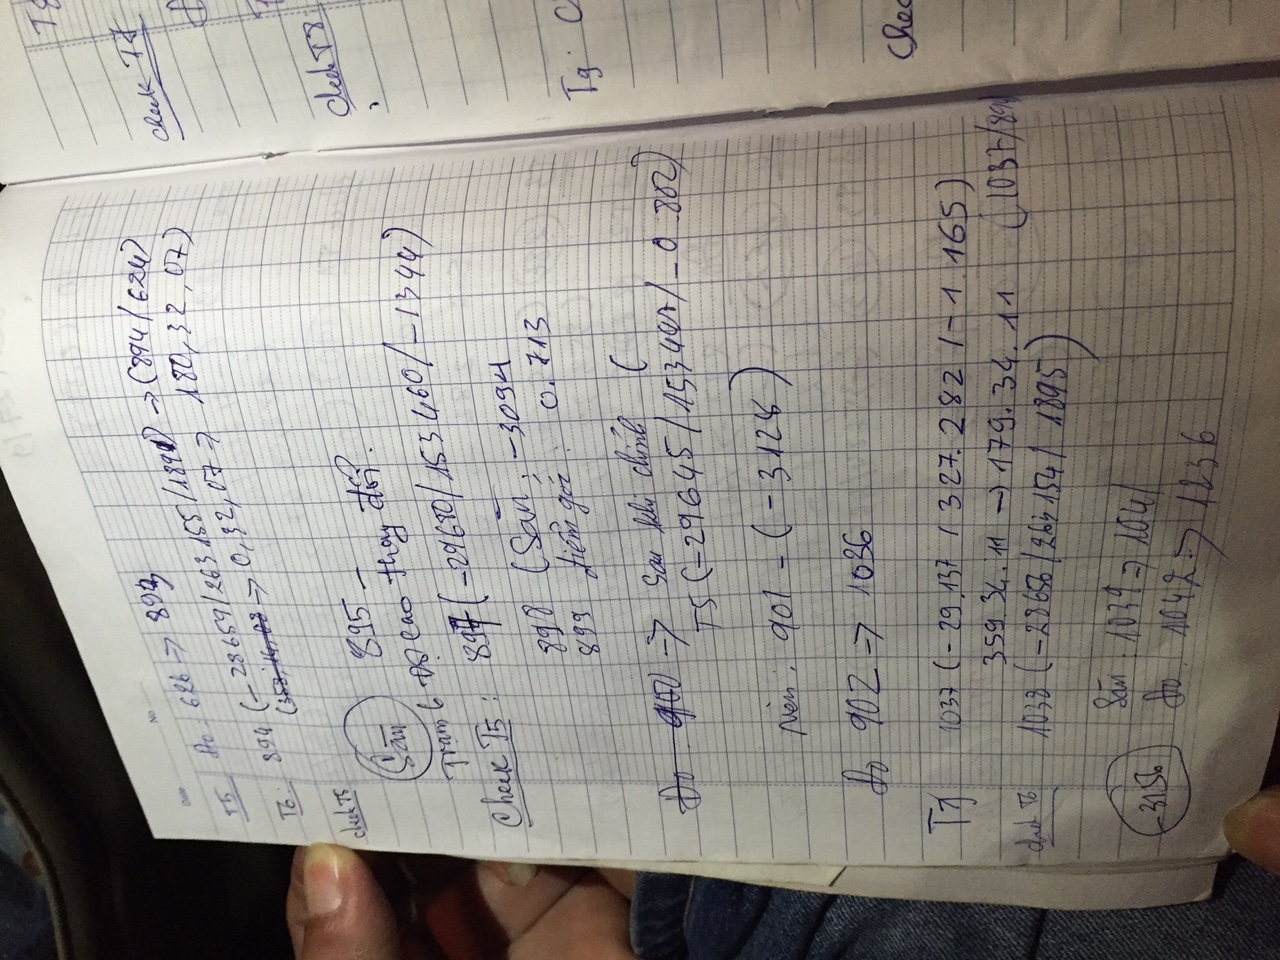 No
Date
T5 Đo: 626 → 893
T6: 894 (-28659/263155/1891) → (894/624)
(358,14,08 → 0,32,07 → 180,32,07)
check T5
Sàn 895 -
Trạm 6 Độ cao thay đổi?
Check T5: 897 (-29680/153460/-1344)
898 (Sàn: -3094
899 điểm gốc: 0.713
Đo 900 → Sau khi chỉnh (
T5 (-29645/153447/-0.802)
Nền: 901 - (-3128)
Đo 902 → 1036
T7 1037 (-29.137 / 327.282 / -1.165)
359.34.11 → 179.34.11 (1037/894
check T6 1038 (-28656/263154/1895)
Sàn: 1039 → 1041
-3156
Đo: 1042 → 1236
T8
check T7
check T8
T9: C
Chec